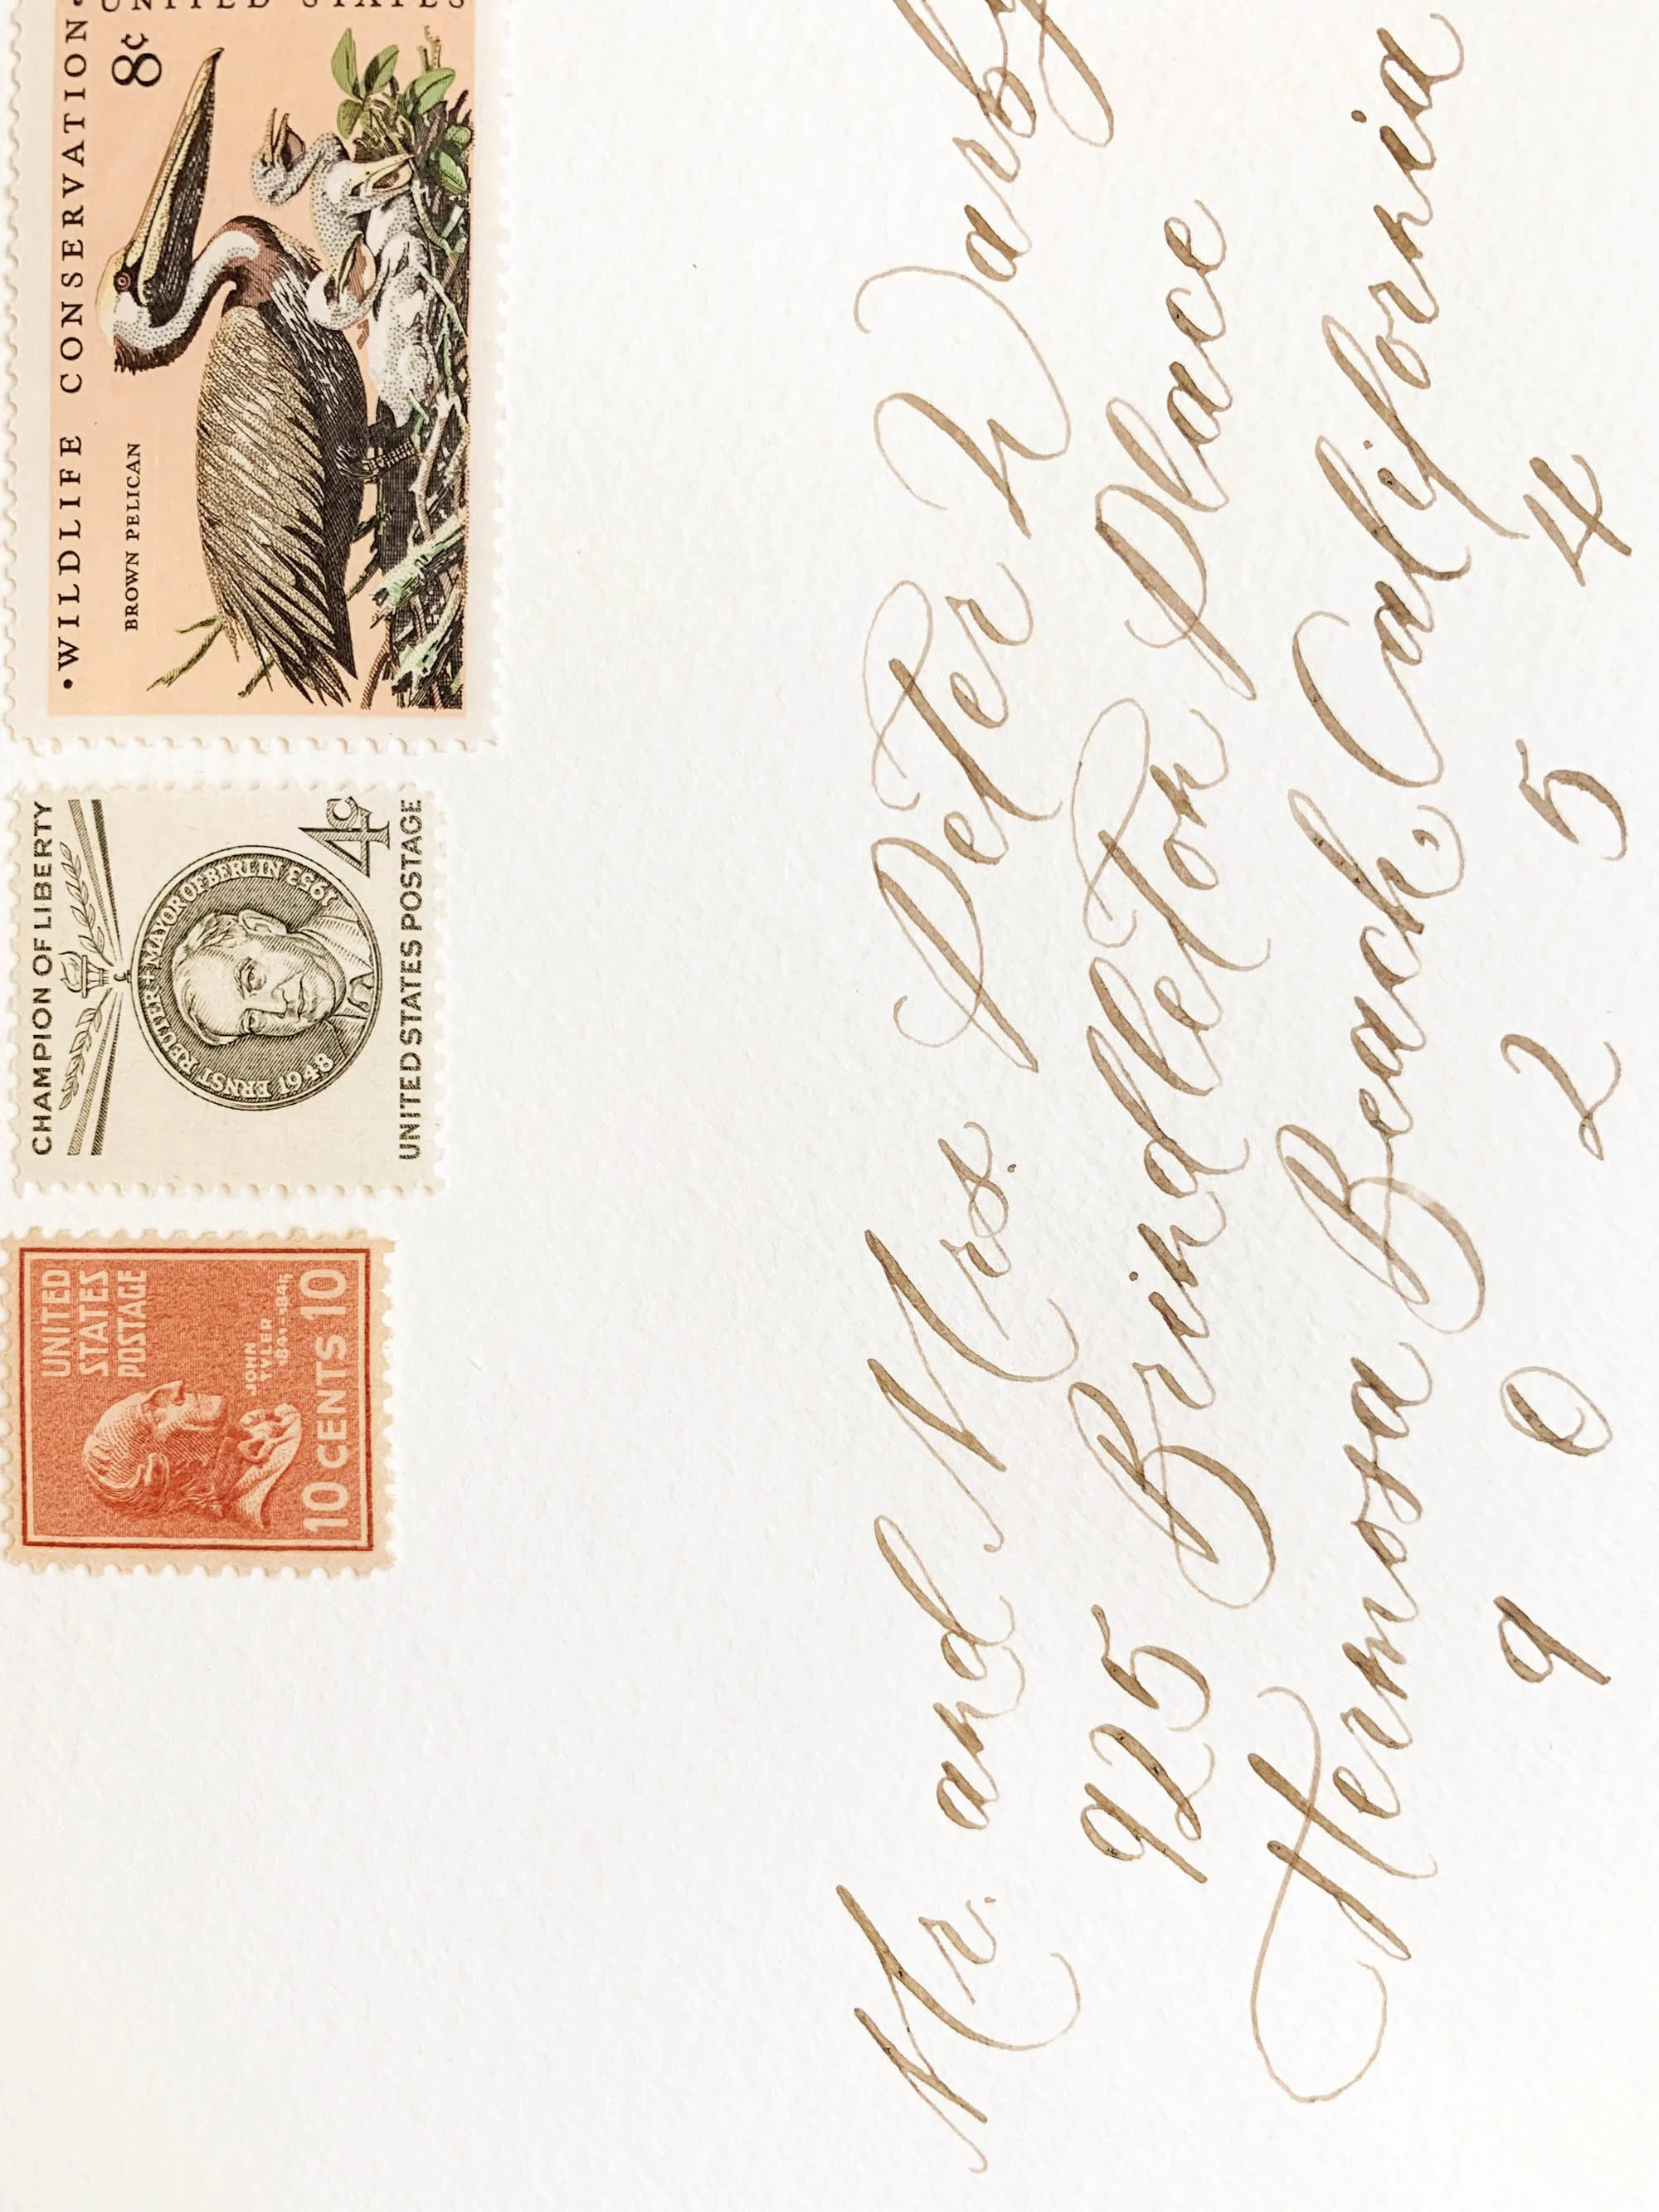 UNITED
STATES
POSTAGE
JOHN
TYLER
1841-1845
10 CENTS 10
CHAMPION OF LIBERTY
ERNST REUTER + MAYOR OF BERLIN
1948 1953
4¢
UNITED STATES POSTAGE
• WILDLIFE CONSERVATION •
UNITED STATES
BROWN PELICAN
8¢
Mr. and Mrs. Peter Warby
925 Brindleton Place
Hermosa Beach, California
9 0 2 5 4